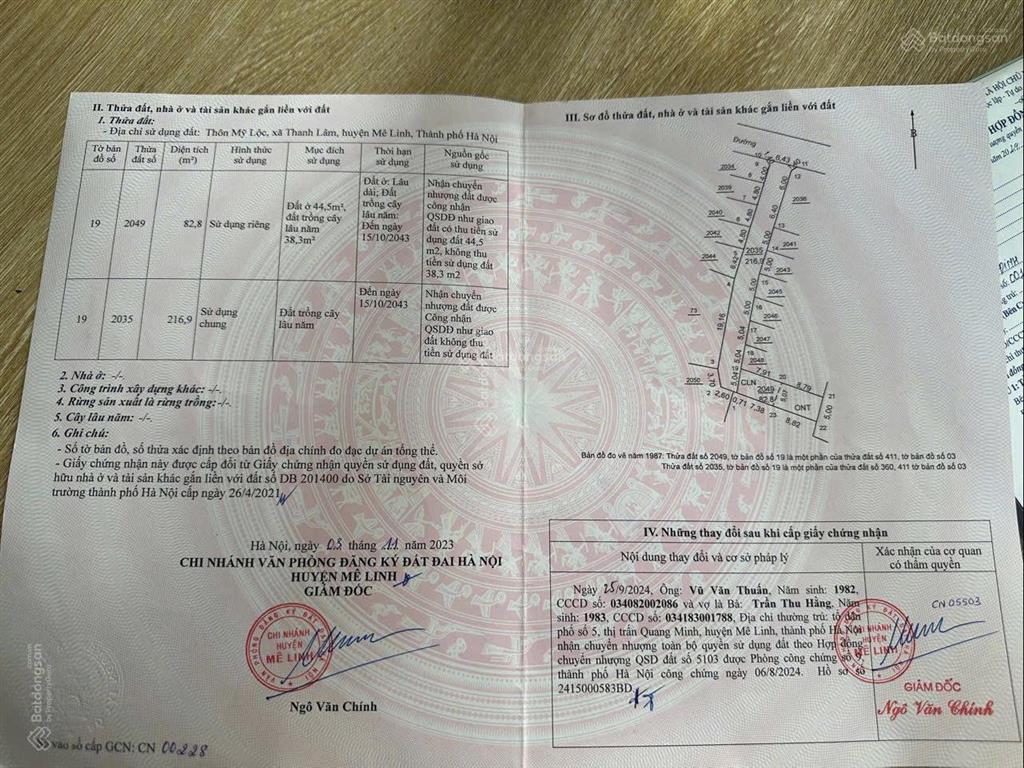 II. Thửa đất, nhà ở và tài sản khác gắn liền với đất
1. Thửa đất:
- Địa chỉ sử dụng đất: Thôn Mỹ Lộc, xã Thanh Lâm, huyện Mê Linh, Thành phố Hà Nội
Tờ bản đồ số
Thửa đất số
Diện tích (m²)
Hình thức sử dụng
Mục đích sử dụng
Thời hạn sử dụng
Nguồn gốc sử dụng
19
2049
82,8
Sử dụng riêng
Đất ở 44,5m², đất trồng cây lâu năm 38,3m²
Đất ở: Lâu dài; Đất trồng cây lâu năm: Đến ngày 15/10/2043
Nhận chuyển nhượng đất được công nhận QSDĐ như giao đất có thu tiền sử dụng đất 44,5 m2, không thu tiền sử dụng đất 38,3 m2
19
2035
216,9
Sử dụng chung
Đất trồng cây lâu năm
Đến ngày 15/10/2043
Nhận chuyển nhượng đất được Công nhận QSDĐ như giao đất không thu tiền sử dụng đất
2. Nhà ở: -/-.
3. Công trình xây dựng khác: -/-.
4. Rừng sản xuất là rừng trồng: -/-.
5. Cây lâu năm: -/-.
6. Ghi chú:
- Số tờ bản đồ, số thửa xác định theo bản đồ địa chính đo đạc dự án tổng thể.
- Giấy chứng nhận này được cấp đổi từ Giấy chứng nhận quyền sử dụng đất, quyền sở
hữu nhà ở và tài sản khác gắn liền với đất số DB 201400 do Sở Tài nguyên và Môi
trường thành phố Hà Nội cấp ngày 26/4/2021
Hà Nội, ngày 03 tháng 11 năm 2023
CHI NHÁNH VĂN PHÒNG ĐĂNG KÝ ĐẤT ĐAI HÀ NỘI
HUYỆN MÊ LINH
GIÁM ĐỐC
CHI NHÁNH
HUYỆN
MÊ LINH
Ngô Văn Chính
vào sổ cấp GCN: CN 00228
III. Sơ đồ thửa đất, nhà ở và tài sản khác gắn liền với đất
B
Đường
6,43
2034
2039
2040
2042
2044
73
2050
2036
2041
2043
2045
2046
2047
2048
2035
216,9
19,16
CLN
2049
82,8
ONT
7,91
8,79
5,00
8,82
7,38
0,71
2,60
3,70
Bản đồ đo vẽ năm 1987: Thửa đất số 2049, tờ bản đồ số 19 là một phần của thửa đất số 411, tờ bản đồ số 03
Thửa đất số 2035, tờ bản đồ số 19 là một phần của thửa đất số 360, 411 tờ bản đồ số 03
IV. Những thay đổi sau khi cấp giấy chứng nhận
Nội dung thay đổi và cơ sở pháp lý
Xác nhận của cơ quan có thẩm quyền
Ngày 25/9/2024, Ông: Vũ Văn Thuấn, Năm sinh: 1982,
CCCD số: 034082002086 và vợ là Bà: Trần Thu Hằng, Năm
sinh: 1983, CCCD số: 034183001788, Địa chỉ thường trú: tổ dân
phố số 5, thị trấn Quang Minh, huyện Mê Linh, thành phố Hà Nội
nhận chuyển nhượng toàn bộ quyền sử dụng đất theo Hợp đồng
chuyển nhượng QSD đất số 5103 được Phòng công chứng số 9,
thành phố Hà Nội công chứng ngày 06/8/2024. Hồ sơ số
2415000583BD.
CN 05503
CHI NHÁNH
HUYỆN
MÊ LINH
GIÁM ĐỐC
Ngô Văn Chính
HỢP ĐỒN
Batdongsan
by PropertyGuru